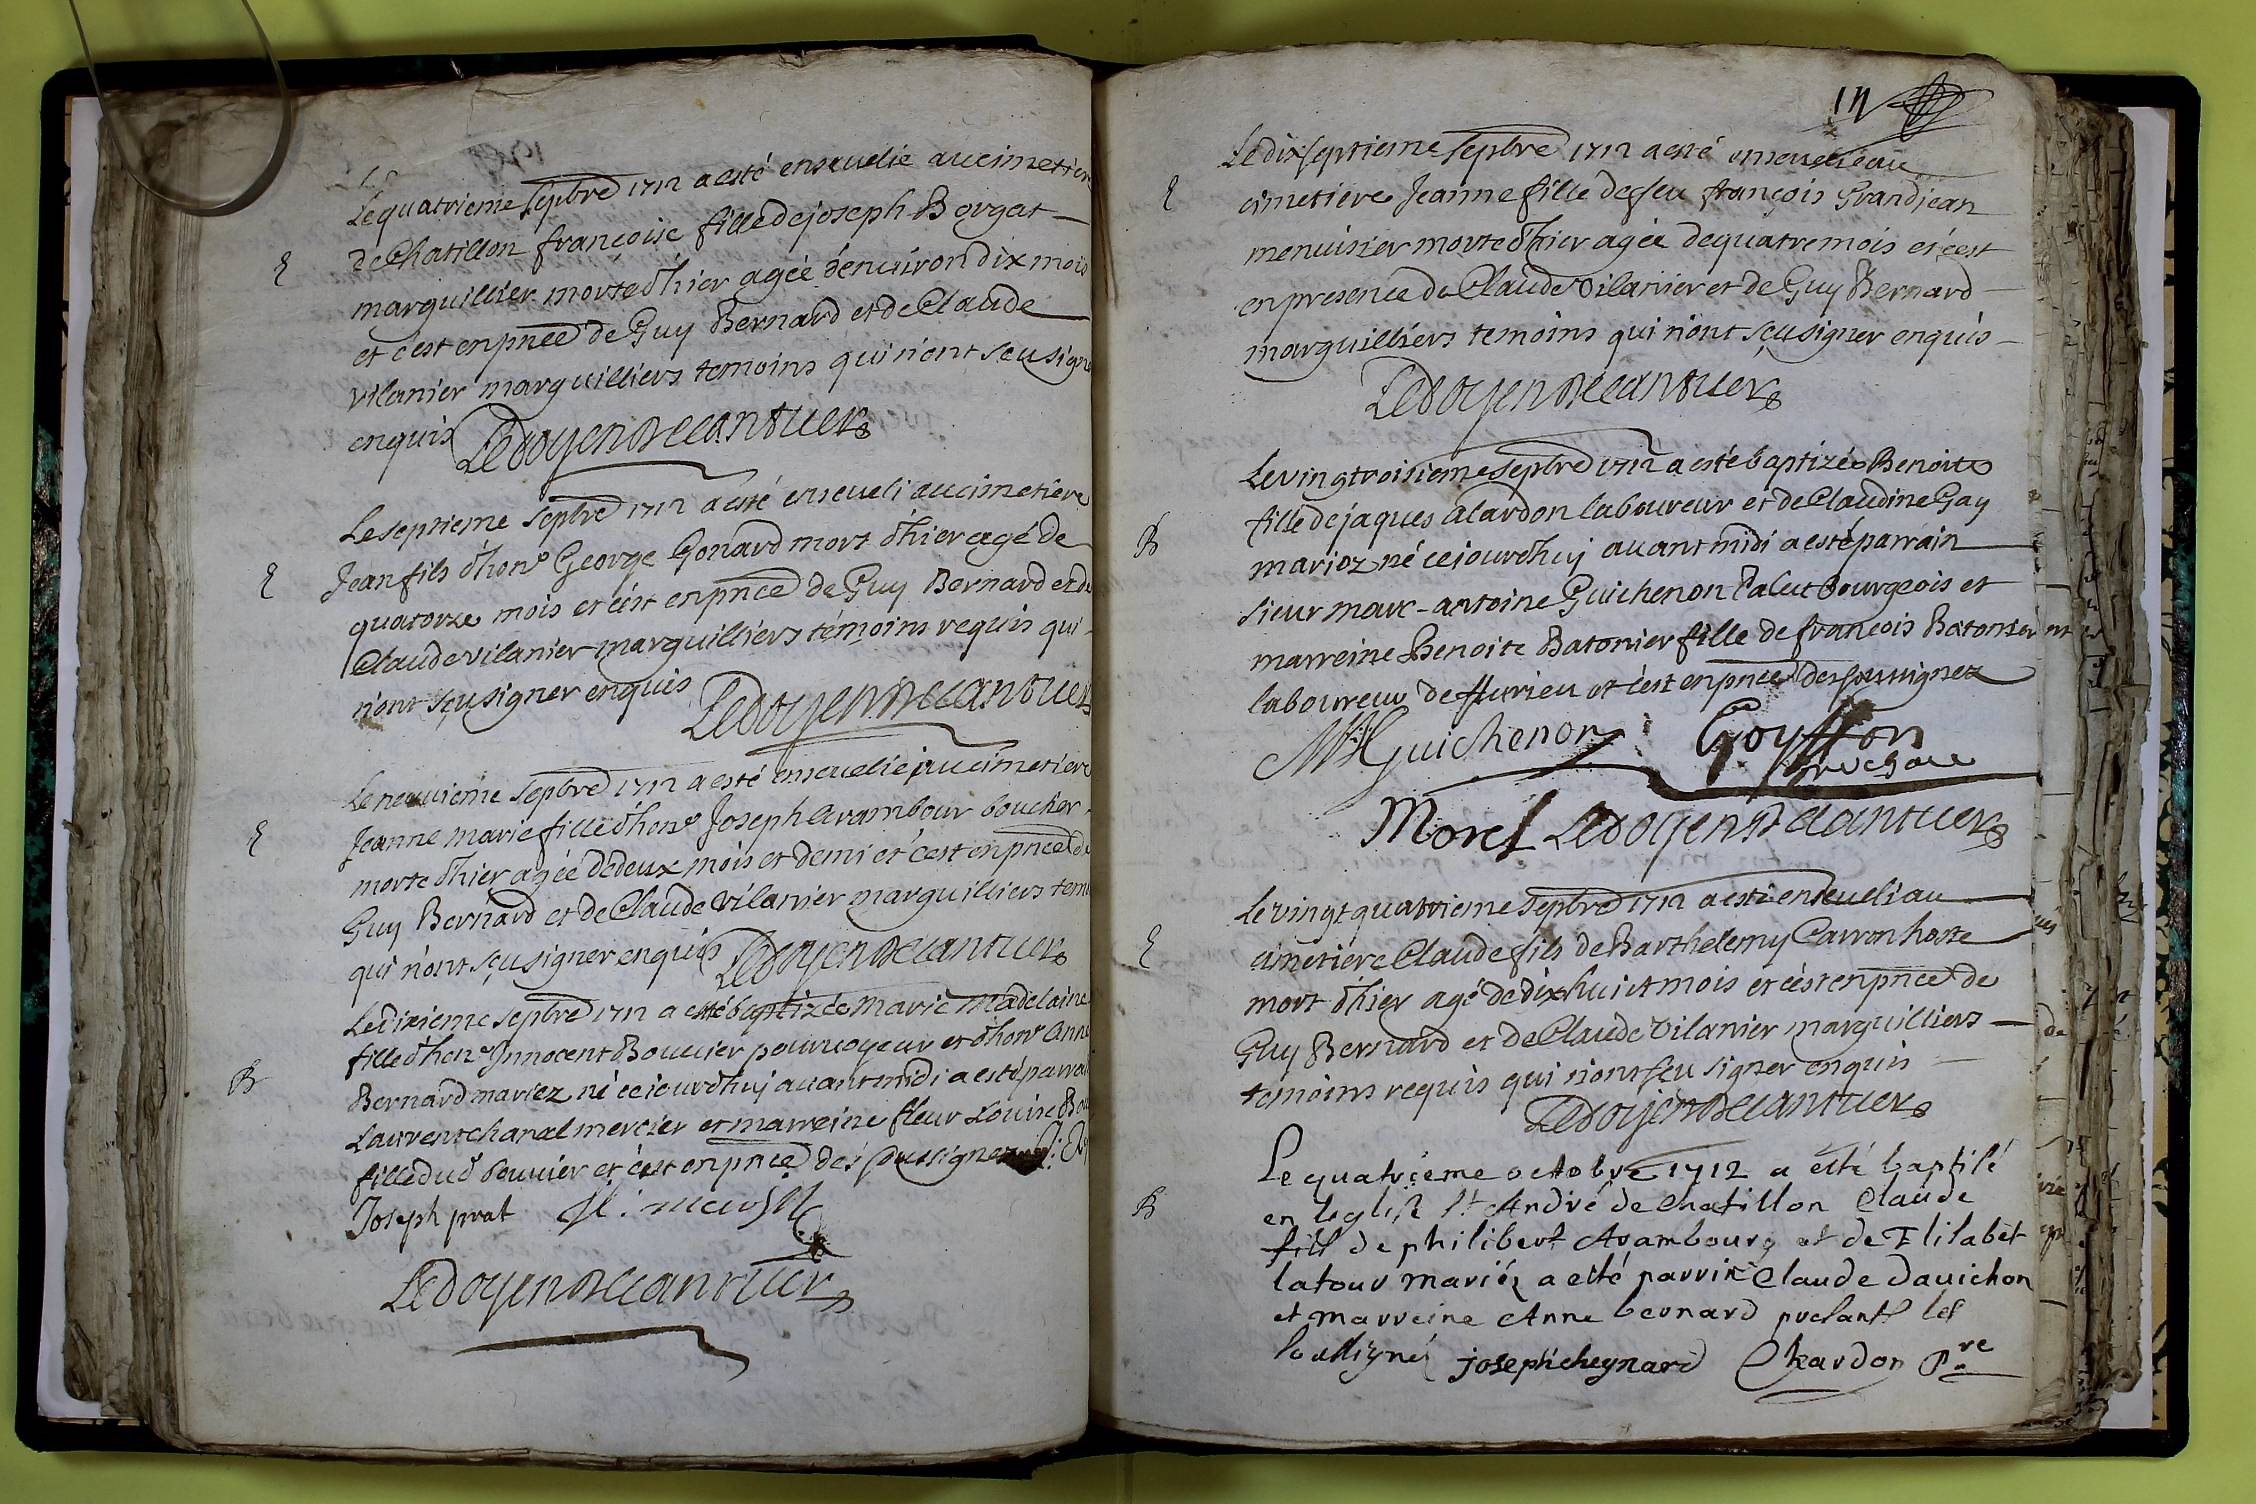 Le quatrieme sepbre 1712 a esté enseuelie au cimetiere
de Chatillon françoise fille de joseph Borgat
E
marguillier morte d'hier agée d'enuiron dix mois
et c'est en pnce de Guy Bernard et de Claude
vilanier marguilliers temoins qui n'ont sçu signer
enquis Ledoyen Decantuer
Le septieme sepbre 1712 a esté enseueli au cimetiere
E
Jean fils d'hon^e George Gonard mort d'hier agé de
quatorze mois et c'est en pnce de Guy Bernard et de
Claude vilanier marguilliers temoins requis qui
n'ont sçu signer enquis Ledoyen Decantuer
Le neuuieme sepbre 1712 a esté enseuelie au cimetiere
E
Jeanne Marie fille d'hon^e Joseph Arambour boucher
morte d'hier agée de deux mois et demi et c'est en pnce de
Guy Bernard et de Claude Vilanier marguilliers tem
qui n'ont sçu signer enquis Ledoyen Decantuer
Le dixieme sepbre 1712 a esté baptizée Marie Madelaine
fille d'hon^e Innocent Bouuier pouruoyeur et d'hon^e Anne
B
Bernard mariez né ce jourd'huy auant midi a esté parrai
Laurent chanal mercier et marreine fleur Louise Bou
fille dud bouuier et c'est en pnce des soussignez
Joseph prat
Ledoyen Decantuer
Le dixseptieme sepbre 1712 a esté enseuelie au
E
cimetiere Jeanne fille de feu françois Grandjean
menuisier morte d'hier agée de quatre mois et c'est
en presence de Claude Vilanier et de Guy Bernard
marguilliers temoins qui n'ont sçu signer enquis
Ledoyen Decantuer
Le vingtroisieme sepbre 1712 a esté baptizée Benoite
fille de jaques Alardon laboureur et de Claudine Gay
B
mariez né ce jourd'huy auant midi a esté parrain
sieur marc-antoine Guichenon Palut bourgeois et
marreine Benoite Batonier fille de françois Batonier
laboureur de flurieu et c'est en pnce des soussignez
MA Guichenon Goyffon
Morel Ledoyen Decantuer
Le vingt quatrieme sepbre 1712 a esté enseueli au
E
cimetiere Claude fils de Barthelemy Carron hoste
mort d'hier agé de dixhuict mois et c'est en pnce de
Guy Bernard et de Claude Vilanier marguilliers
temoins requis qui n'ont sçu signer enquis
Ledoyen Decantuer
Le quatrieme octobre 1712 a esté baptisé
B
en leglise St André de Chatillon Claude
fils de philibert Arambourg et de Elisabet
latour mariéz a esté parrin Claude dauichon
et marreine Anne bernard presants les
soussignés joseph cheynard Chardon P^re